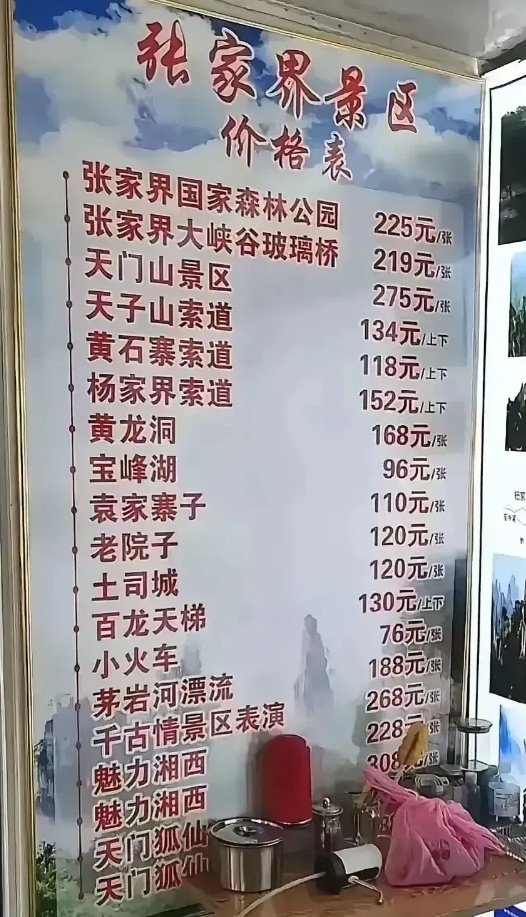 张家界景区
价格表
张家界国家森林公园 225元/张
张家界大峡谷玻璃桥 219元/张
天门山景区 275元/张
天子山索道 134元/上下
黄石寨索道 118元/上下
杨家界索道 152元/上下
黄龙洞 168元/张
宝峰湖 96元/张
袁家寨子 110元/张
老院子 120元/张
土司城 120元/张
百龙天梯 130元/上下
小火车 76元/张
茅岩河漂流 188元/张
千古情景区表演 268元/张
魅力湘西 228元/张
魅力湘西 308
天门狐仙
天门狐仙